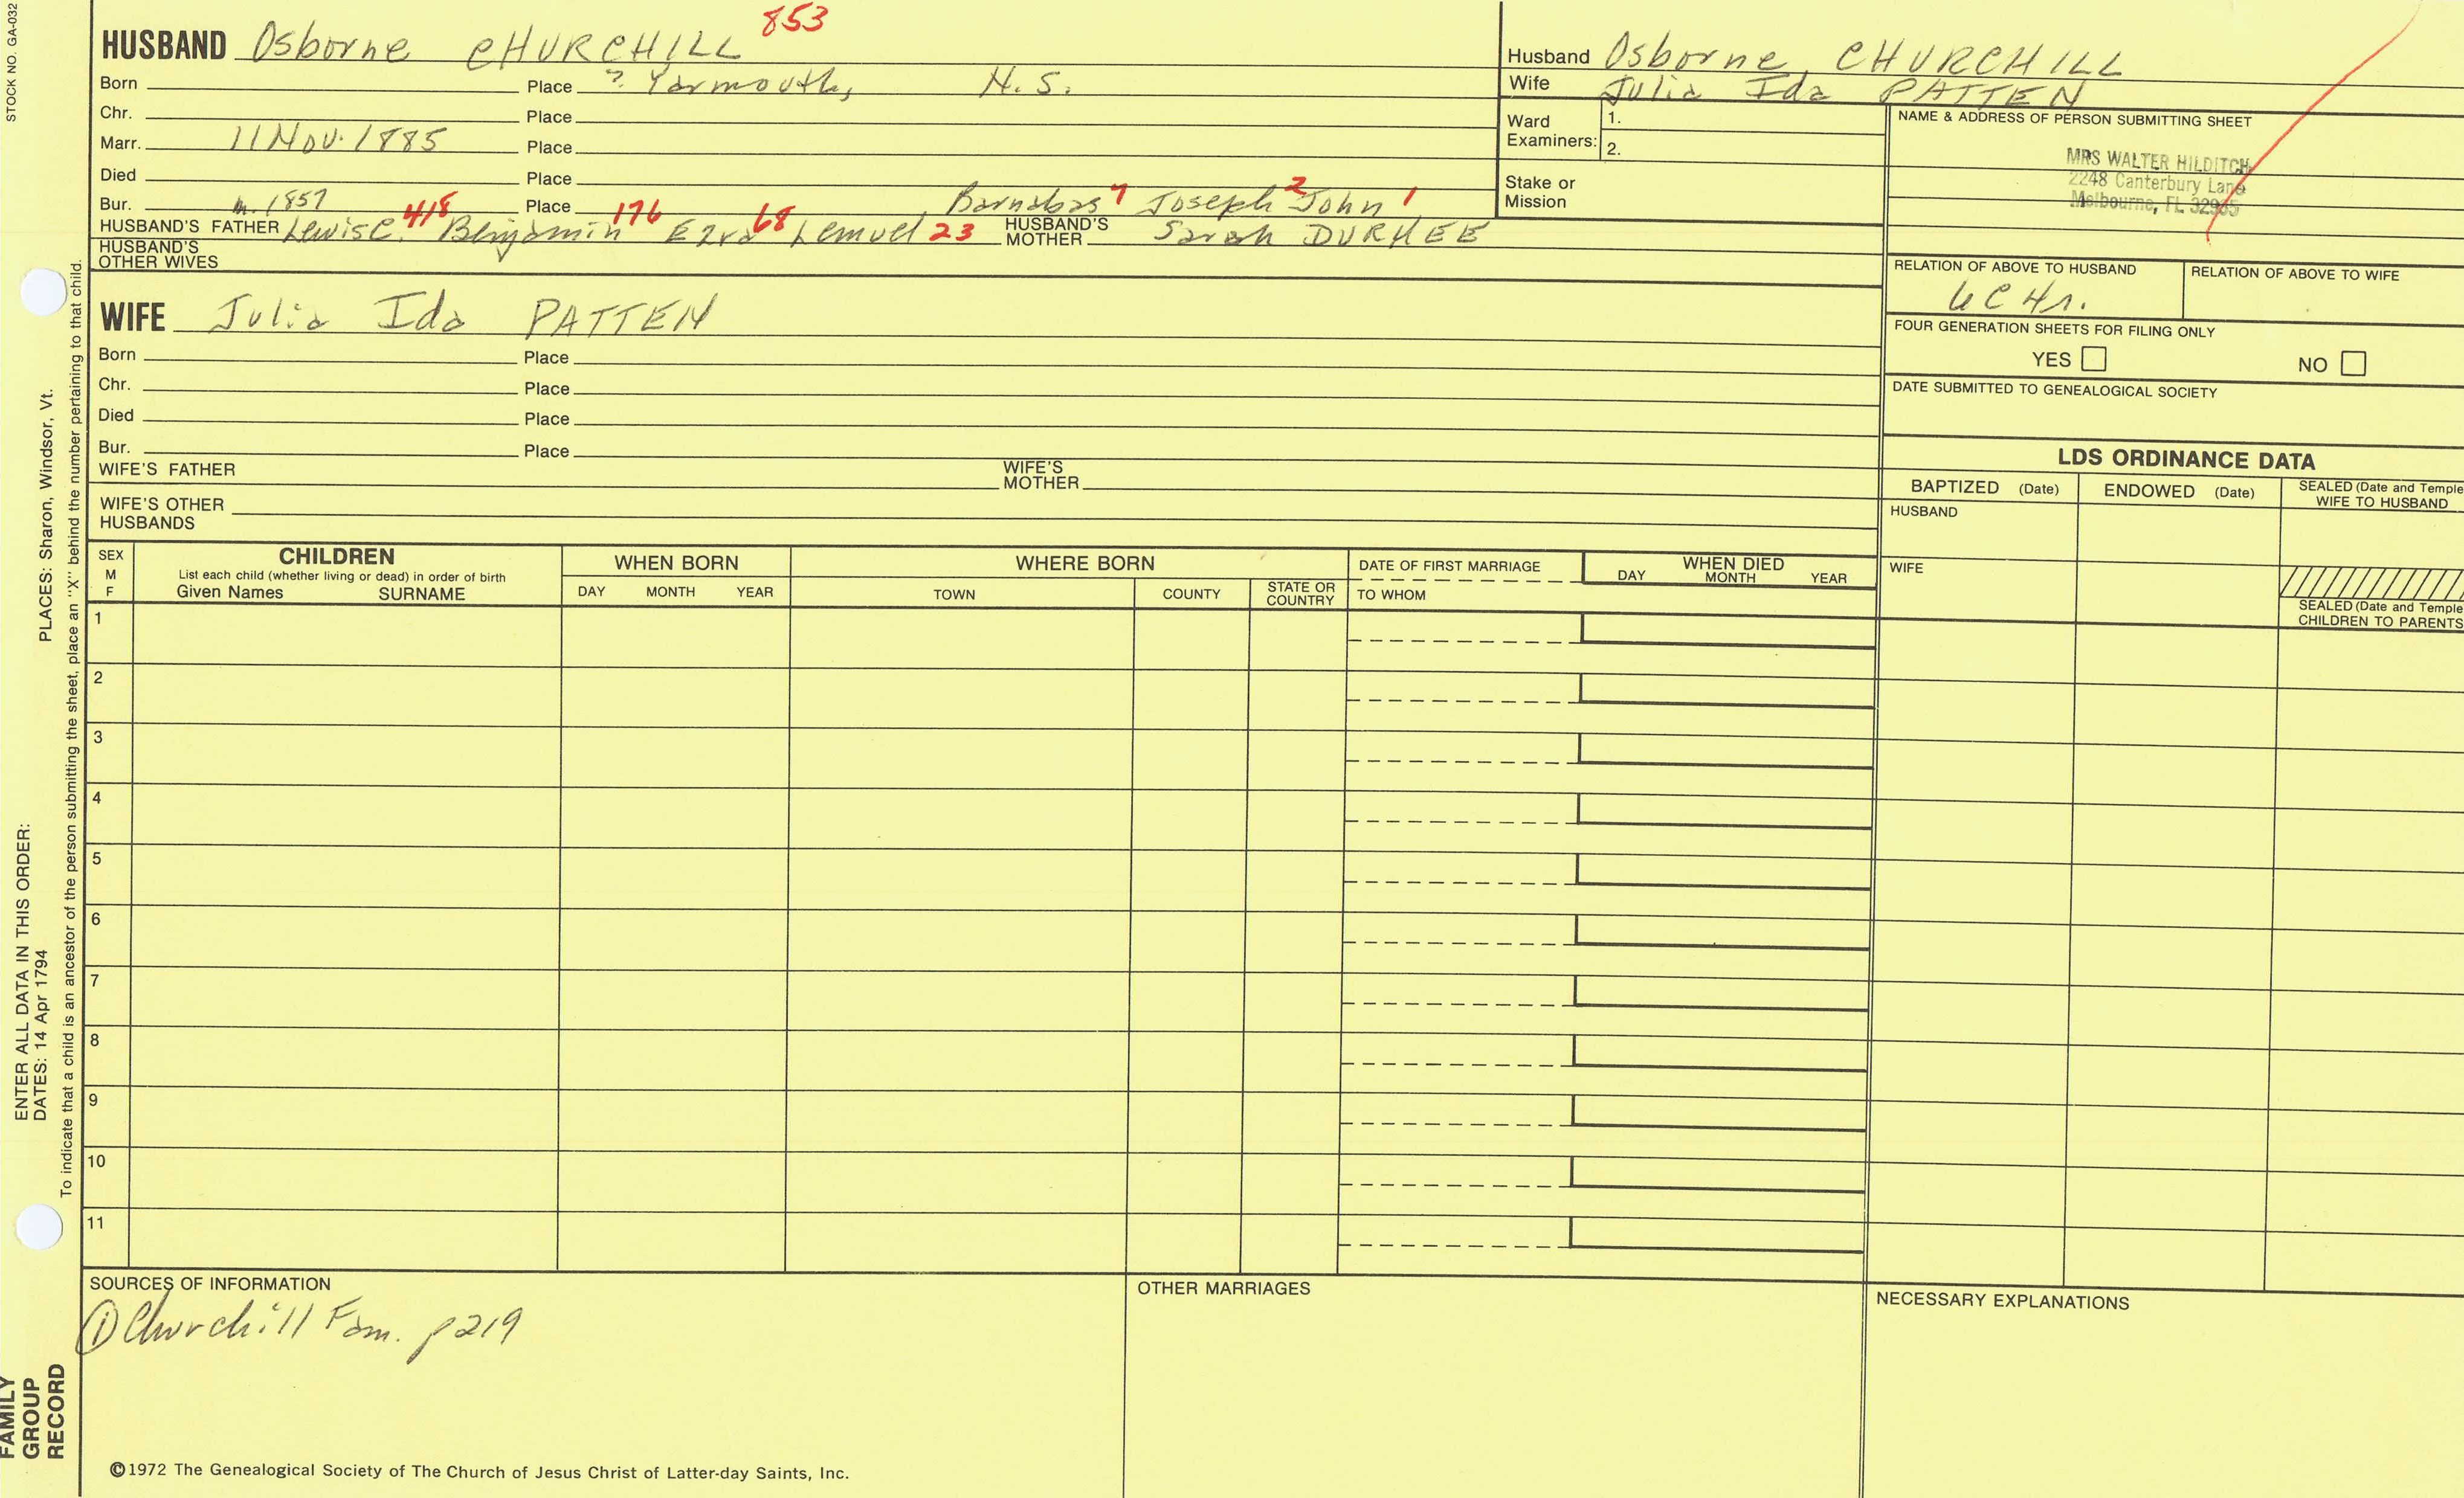 STOCK NO. GA-032
HUSBAND Osborne CHURCHILL 853
Born Place ? Yarmouth, N.S.
Chr. Place
Marr. 11 Nov. 1885 Place
Died Place
Bur. m. 1857 Place Barnabas Joseph 2 John 1
HUSBAND'S FATHER Lewis C. 418 Benjamin 176 Ezra 68 Lemuel 23 HUSBAND'S MOTHER Sarah DURKEE
HUSBAND'S OTHER WIVES
WIFE Julia Ida PATTEN
Born Place
Chr. Place
Died Place
Bur. Place
WIFE'S FATHER WIFE'S MOTHER
WIFE'S OTHER HUSBANDS
Husband Osborne CHURCHILL
Wife Julia Ida PATTEN
Ward Examiners: 1.
2.
Stake or Mission
NAME & ADDRESS OF PERSON SUBMITTING SHEET
MRS WALTER HILDITCH
2248 Canterbury Lane
Melbourne, FL 32935
RELATION OF ABOVE TO HUSBAND RELATION OF ABOVE TO WIFE
FOUR GENERATION SHEETS FOR FILING ONLY
YES NO
DATE SUBMITTED TO GENEALOGICAL SOCIETY
LDS ORDINANCE DATA
BAPTIZED (Date) ENDOWED (Date) SEALED (Date and Temple
WIFE TO HUSBAND
HUSBAND
WIFE
SEALED (Date and Temple
CHILDREN TO PARENTS
SEX M F
CHILDREN
List each child (whether living or dead) in order of birth
Given Names SURNAME
WHEN BORN
DAY MONTH YEAR
WHERE BORN
TOWN COUNTY STATE OR COUNTRY
DATE OF FIRST MARRIAGE
TO WHOM
WHEN DIED
DAY MONTH YEAR
1
2
3
4
5
6
7
8
9
10
11
SOURCES OF INFORMATION
① Churchill Fam. p 219
OTHER MARRIAGES
NECESSARY EXPLANATIONS
©1972 The Genealogical Society of The Church of Jesus Christ of Latter-day Saints, Inc.
ENTER ALL DATA IN THIS ORDER:
DATES: 14 Apr 1794 PLACES: Sharon, Windsor, Vt.
To indicate that a child is an ancestor of the person submitting the sheet, place an "X" behind the number pertaining to that child.
FAMILY
GROUP
RECORD